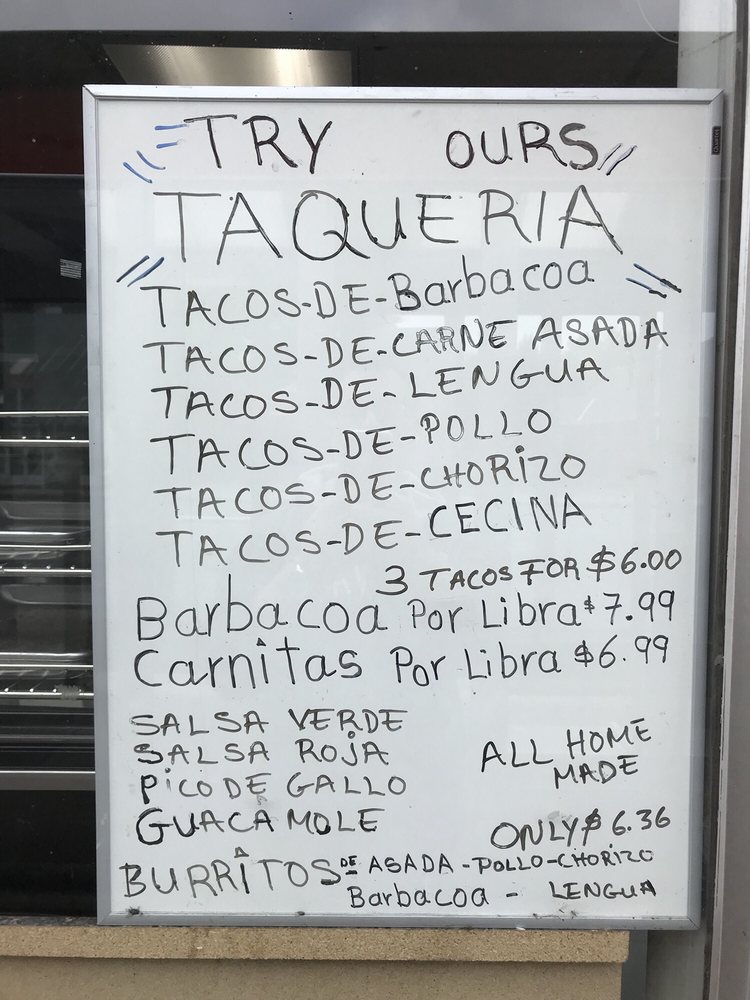 TRY OURS
TAQUERIA
TACOS-DE-Barbacoa
TACOS-DE-CARNE ASADA
TACOS-DE-LENGUA
TACOS-DE-POLLO
TACOS-DE-CHORIZO
TACOS-DE-CECINA
3 TACOS FOR $6.00
Barbacoa Por Libra $7.99
Carnitas Por Libra $6.99
SALSA VERDE
SALSA ROJA
PICO DE GALLO
GUACAMOLE
ALL HOME
MADE
ONLY $6.36
BURRITOS DE ASADA-POLLO-CHORIZO
Barbacoa - LENGUA